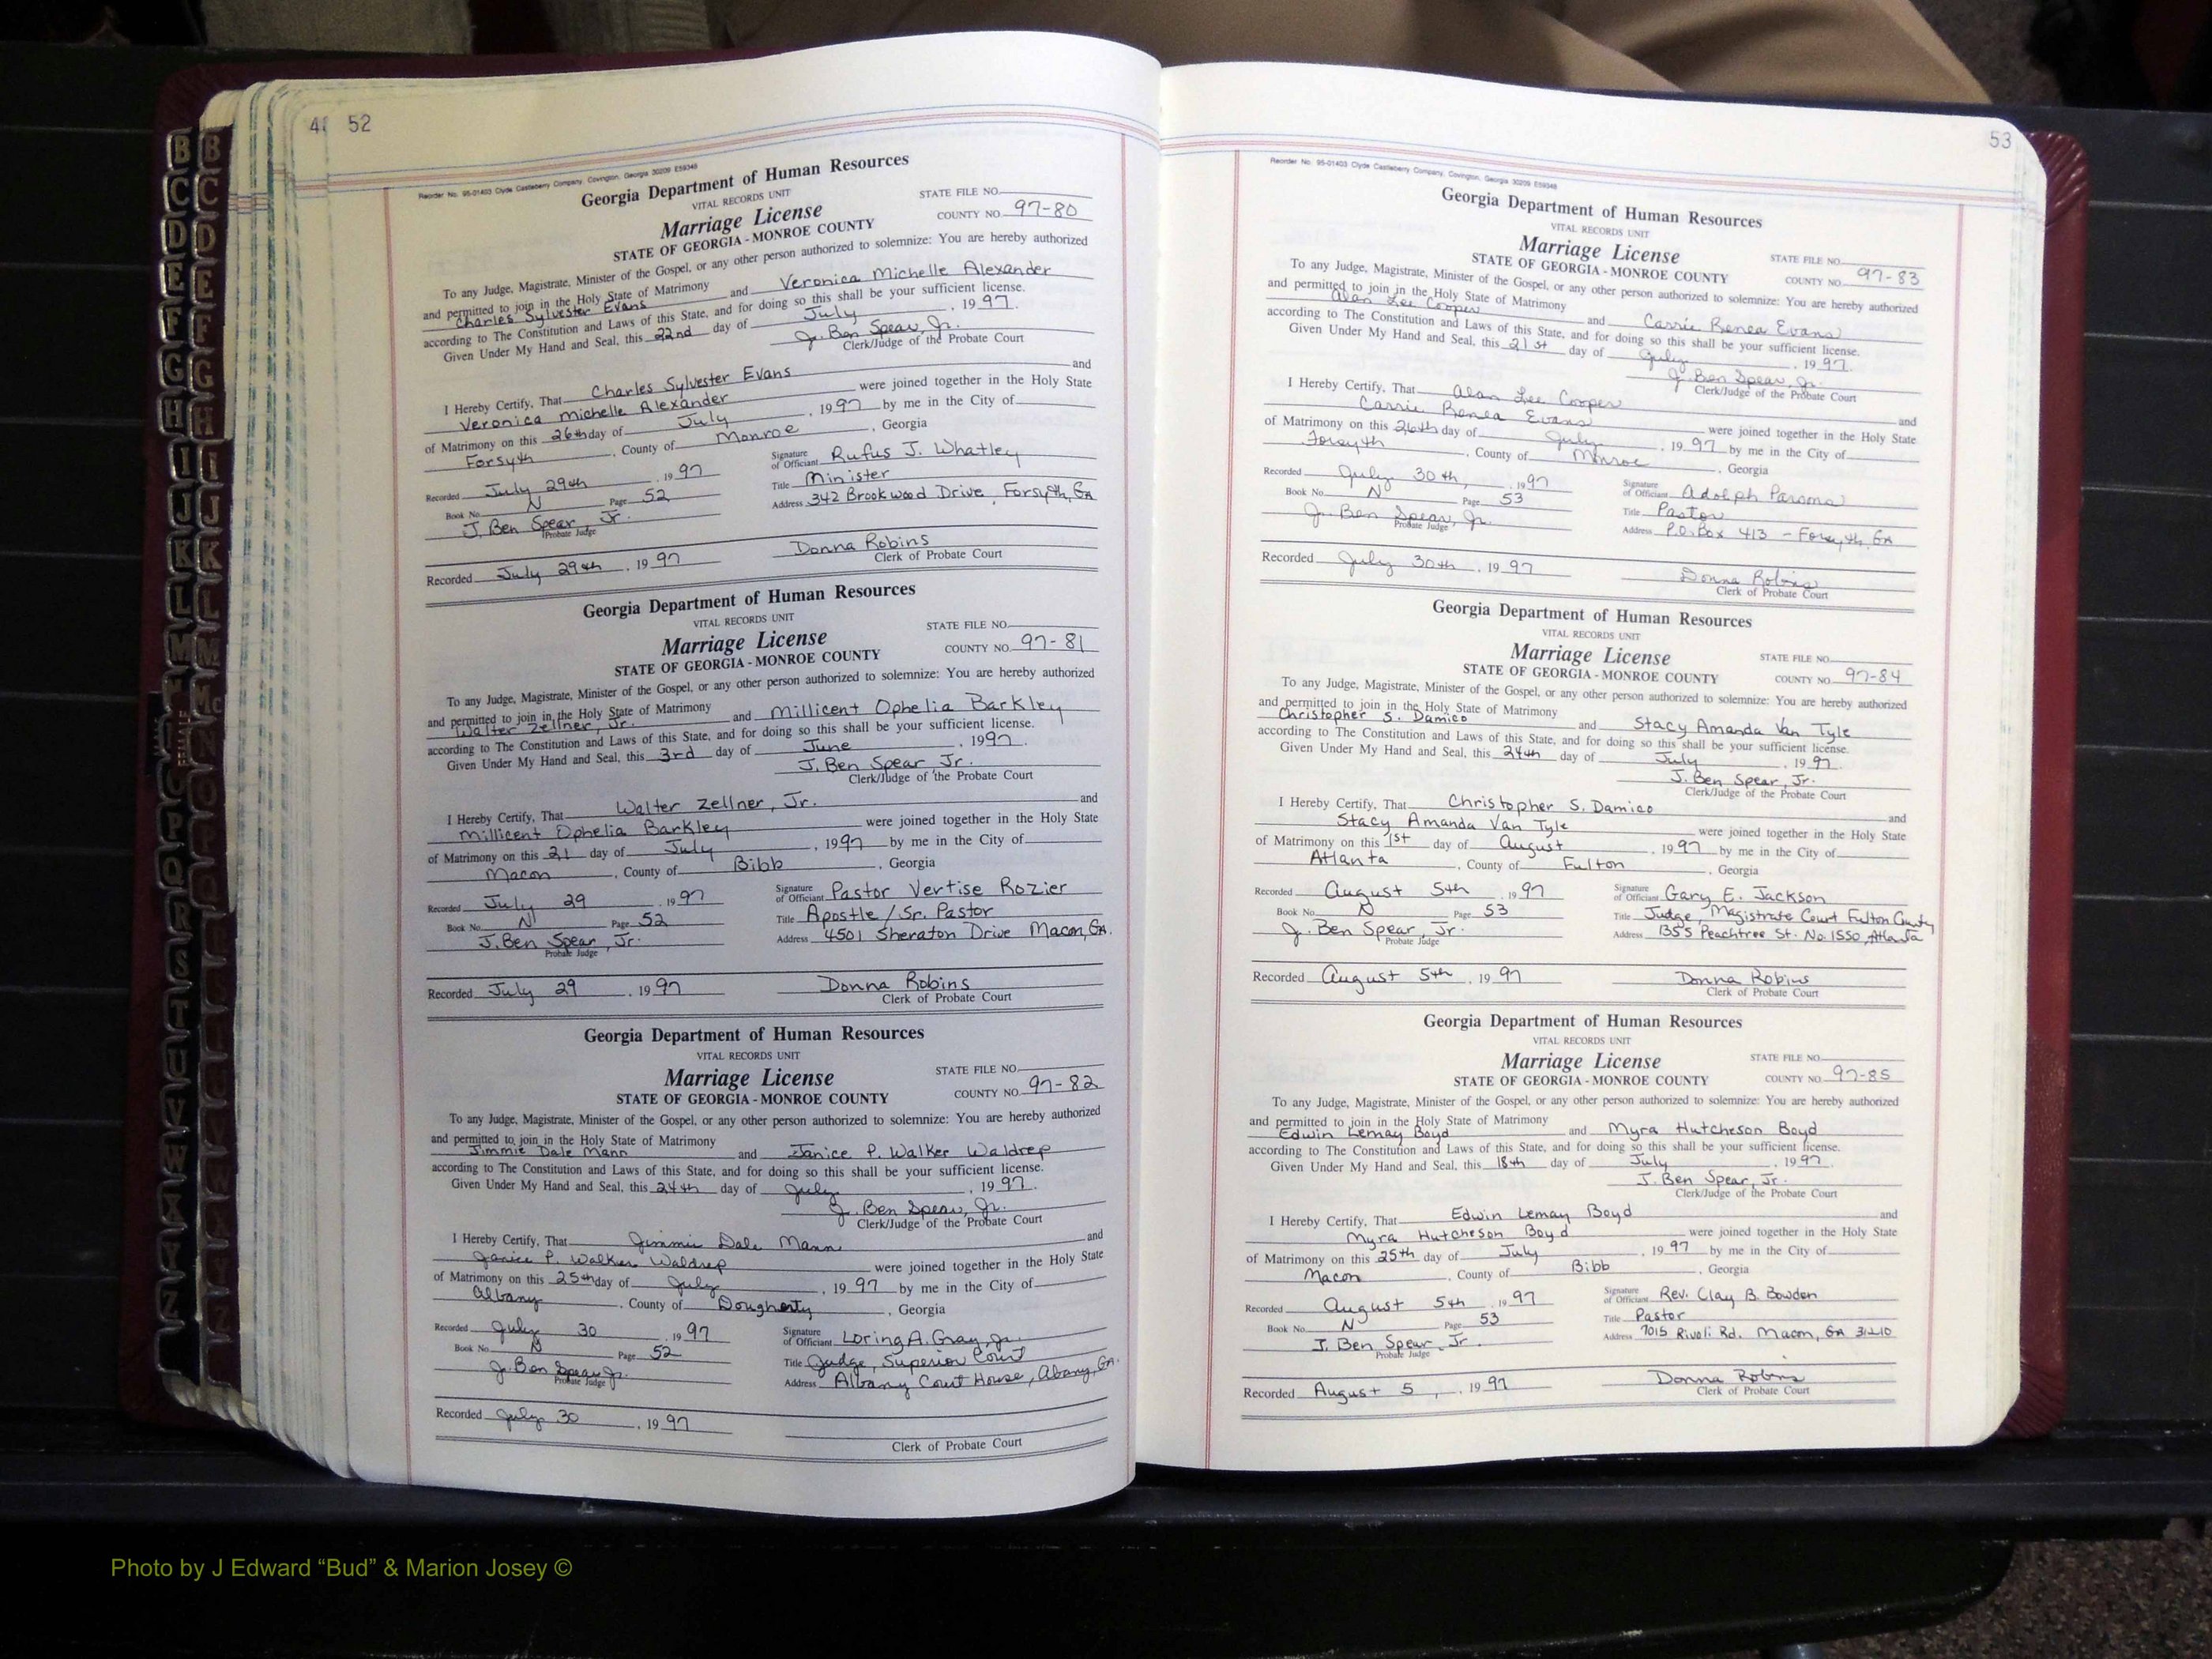 B B
C C
D D
E E
F F
G G
H H
I I
J J
K K
L L
M M
Mc
P
Q
R
S
T
U
V
W
X
Y
Z
52
Reorder No. 95-01403 Clyde Castleberry Company, Covington, Georgia 30209 E59348
Georgia Department of Human Resources
VITAL RECORDS UNIT
STATE FILE NO.
Marriage License
COUNTY NO. 97-80
STATE OF GEORGIA - MONROE COUNTY
To any Judge, Magistrate, Minister of the Gospel, or any other person authorized to solemnize: You are hereby authorized
and permitted to join in the Holy State of Matrimony
Charles Sylvester Evans and Veronica Michelle Alexander
according to The Constitution and Laws of this State, and for doing so this shall be your sufficient license.
Given Under My Hand and Seal, this 22nd day of July, 1997.
J. Ben Spear, Jr.
Clerk/Judge of the Probate Court
I Hereby Certify, That Charles Sylvester Evans and
Veronica Michelle Alexander were joined together in the Holy State
of Matrimony on this 26th day of July, 1997 by me in the City of
Forsyth, County of Monroe, Georgia
Recorded July 29th, 1997
Signature of Officiant Rufus J. Whatley
Book No. N Page 52
Title Minister
J. Ben Spear, Jr.
Probate Judge
Address 342 Brookwood Drive, Forsyth, GA
Recorded July 29th, 1997
Donna Robins
Clerk of Probate Court
Georgia Department of Human Resources
VITAL RECORDS UNIT
STATE FILE NO.
Marriage License
COUNTY NO. 97-81
STATE OF GEORGIA - MONROE COUNTY
To any Judge, Magistrate, Minister of the Gospel, or any other person authorized to solemnize: You are hereby authorized
and permitted to join in the Holy State of Matrimony
Walter Zellner, Jr. and Millicent Ophelia Barkley
according to The Constitution and Laws of this State, and for doing so this shall be your sufficient license.
Given Under My Hand and Seal, this 3rd day of June, 1997.
J. Ben Spear Jr.
Clerk/Judge of the Probate Court
I Hereby Certify, That Walter Zellner, Jr. and
Millicent Ophelia Barkley were joined together in the Holy State
of Matrimony on this 21 day of July, 1997 by me in the City of
Macon, County of Bibb, Georgia
Recorded July 29, 1997
Signature of Officiant Pastor Vertise Rozier
Book No. N Page 52
Title Apostle / Sr. Pastor
J. Ben Spear, Jr.
Probate Judge
Address 4501 Sheraton Drive Macon, GA.
Recorded July 29, 1997
Donna Robins
Clerk of Probate Court
Georgia Department of Human Resources
VITAL RECORDS UNIT
STATE FILE NO.
Marriage License
COUNTY NO. 97-82
STATE OF GEORGIA - MONROE COUNTY
To any Judge, Magistrate, Minister of the Gospel, or any other person authorized to solemnize: You are hereby authorized
and permitted to join in the Holy State of Matrimony
Jimmie Dale Mann and Janice P. Walker Waldrep
according to The Constitution and Laws of this State, and for doing so this shall be your sufficient license.
Given Under My Hand and Seal, this 24th day of July, 1997.
J. Ben Spear, Jr.
Clerk/Judge of the Probate Court
I Hereby Certify, That Jimmie Dale Mann and
Janice P. Walker Waldrep were joined together in the Holy State
of Matrimony on this 25th day of July, 1997 by me in the City of
Albany, County of Dougherty, Georgia
Recorded July 30, 1997
Signature of Officiant Loring A. Gray, Jr.
Book No. N Page 52
Title Judge, Superior Court
J. Ben Spear Jr.
Probate Judge
Address Albany Court House, Abany, GA.
Recorded July 30, 1997
Clerk of Probate Court
53
Reorder No. 95-01403 Clyde Castleberry Company, Covington, Georgia 30209 E59348
Georgia Department of Human Resources
VITAL RECORDS UNIT
Marriage License
STATE FILE NO.
STATE OF GEORGIA - MONROE COUNTY
COUNTY NO. 97-83
To any Judge, Magistrate, Minister of the Gospel, or any other person authorized to solemnize: You are hereby authorized
and permitted to join in the Holy State of Matrimony
Alan Lee Cooper and Carrie Renea Evans
according to The Constitution and Laws of this State, and for doing so this shall be your sufficient license.
Given Under My Hand and Seal, this 21st day of July, 1997.
J. Ben Spear, Jr.
Clerk/Judge of the Probate Court
I Hereby Certify, That Alan Lee Cooper and
Carrie Renea Evans were joined together in the Holy State
of Matrimony on this 26th day of July, 1997 by me in the City of
Forsyth, County of Monroe, Georgia
Recorded July 30th, 1997
Signature of Officiant Adolph Parsons
Book No. N Page 53
Title Pastor
J. Ben Spear, Jr.
Probate Judge
Address P.O. Box 413 - Forsyth, GA
Recorded July 30th, 1997
Donna Robins
Clerk of Probate Court
Georgia Department of Human Resources
VITAL RECORDS UNIT
Marriage License
STATE FILE NO.
STATE OF GEORGIA - MONROE COUNTY
COUNTY NO. 97-84
To any Judge, Magistrate, Minister of the Gospel, or any other person authorized to solemnize: You are hereby authorized
and permitted to join in the Holy State of Matrimony
Christopher S. Damico and Stacy Amanda Van Tyle
according to The Constitution and Laws of this State, and for doing so this shall be your sufficient license.
Given Under My Hand and Seal, this 24th day of July, 1997.
J. Ben Spear, Jr.
Clerk/Judge of the Probate Court
I Hereby Certify, That Christopher S. Damico and
Stacy Amanda Van Tyle were joined together in the Holy State
of Matrimony on this 1st day of August, 1997 by me in the City of
Atlanta, County of Fulton, Georgia
Recorded August 5th, 1997
Signature of Officiant Gary E. Jackson
Book No. N Page 53
Title Judge, Magistrate Court Fulton County
J. Ben Spear, Jr.
Probate Judge
Address 1355 Peachtree St. No. 1550, Atlanta
Recorded August 5th, 1997
Donna Robins
Clerk of Probate Court
Georgia Department of Human Resources
VITAL RECORDS UNIT
Marriage License
STATE FILE NO.
STATE OF GEORGIA - MONROE COUNTY
COUNTY NO. 97-85
To any Judge, Magistrate, Minister of the Gospel, or any other person authorized to solemnize: You are hereby authorized
and permitted to join in the Holy State of Matrimony
Edwin Lemay Boyd and Myra Hutcheson Boyd
according to The Constitution and Laws of this State, and for doing so this shall be your sufficient license.
Given Under My Hand and Seal, this 18th day of July, 1997.
J. Ben Spear, Jr.
Clerk/Judge of the Probate Court
I Hereby Certify, That Edwin Lemay Boyd and
Myra Hutcheson Boyd were joined together in the Holy State
of Matrimony on this 25th day of July, 1997 by me in the City of
Macon, County of Bibb, Georgia
Recorded August 5th, 1997
Signature of Officiant Rev. Clay B. Bowden
Book No. N Page 53
Title Pastor
J. Ben Spear, Jr.
Probate Judge
Address 7015 Rivoli Rd. Macon, GA 31210
Recorded August 5, 1997
Donna Robins
Clerk of Probate Court
Photo by J Edward “Bud” & Marion Josey ©